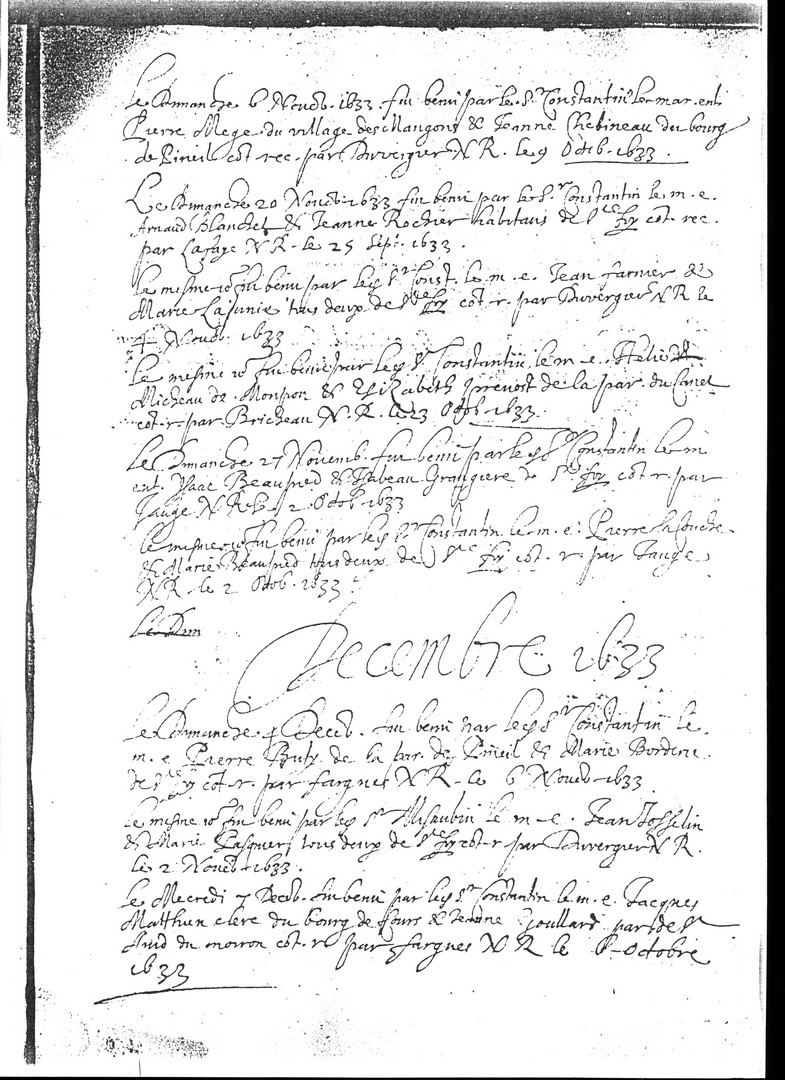 Le Dimanche 6 Novēb. 1633 fut beni par le Sr Constantin le mar. ent.
Pierre Mege du village des Mangons & Jeanne Chebineau du bourg
de Pineil cōt. rec. par Duvergier N R. le 9 Octob. 1633.
Le Dimanche 20 Novēb. 1633 fut beni par le Sr Constantin le m. e.
Arnaud Blanchet & Jeanne Rochier habitans de Ste Foy cōt. rec.
par Lafaye N R. le 25 Sept. 1633.
le mesme jo. fut beni par led Sr Const. le m. e. Jean farnier &
Marie Lajunie tous deux de Ste Foy cōt. r. par Duvergier N R le
4 Novēb. 1633
le mesme jo. fut beni par led Sr Constantin le m. e. Helie
Micheau de Monpon & Elizabeth prevost de la par. du Canet
cōt. r. par Bricheau N. R. le 23 Octob. 1633.
Le Dimanche 27 Novemb. fut beni par led Sr Constantin le m.
ent. Ysaac Beaupied & Isabeau Grangiere de Ste Foy cōt. r. par
Jauge N R le 2 Octob. 1633
le mesme jo. fut beni par led Sr Constantin le m. e. Pierre Lafouche
& Marie Beaupied tous deux de Ste Foy cōt. r. par Jauge
N R. le 2 Octob. 1633
Le Dim
Decembre 1633
Le Dimanche 4 Decēb. fut beni par led Sr Constantin le
m. e. Pierre Puty de la par. de Pineil & Marie Borderie
de Ste Foy cōt. r. par fargues N R. le 6 Novēb. 1633
le mesme jo. fut beni par led Sr Misaubin le m. e. Jean Josselin
& Marie Pasquier tous deux de Ste Foy cōt. r par Duvergier N R.
le 2 Novēb. 1633.
Le Mecredi 7 Decēb. fut beni par led Sr Constantin le m. e. Jacques
Matthieu clerc du bourg de fours & Jeanne Goullard par. de St
Avid du moiron cōt. r par fargues N R le Octobre
1633